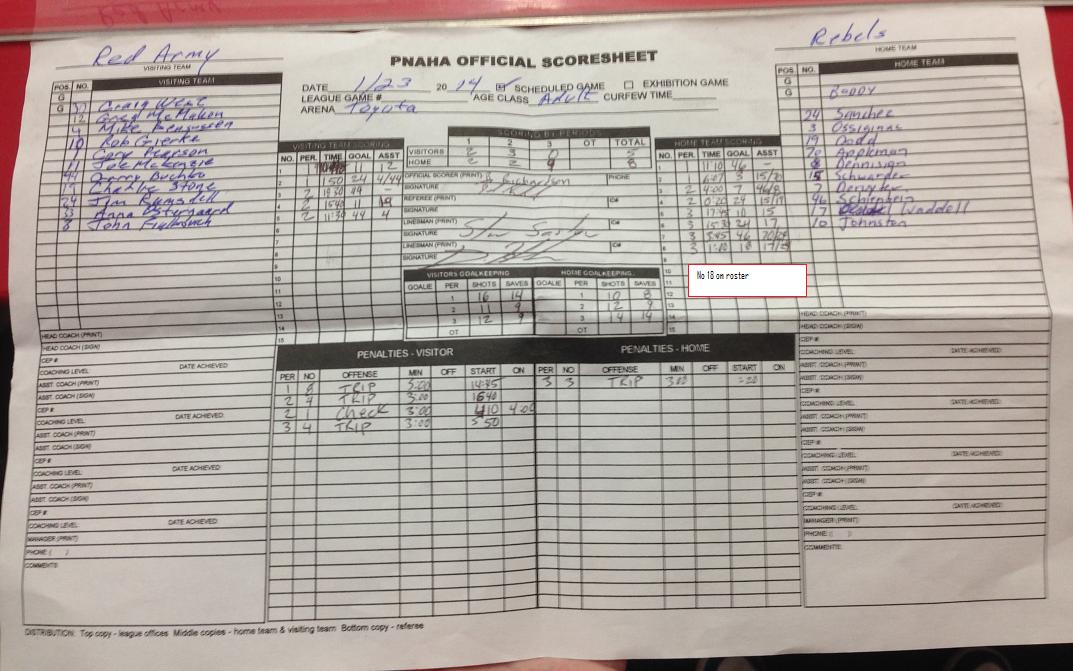 Red Army
VISITING TEAM
Rebels
HOME TEAM
PNAHA OFFICIAL SCORESHEET
DATE 1/23 2014 SCHEDULED GAME EXHIBITION GAME
LEAGUE GAME # AGE CLASS Adult CURFEW TIME
ARENA Toyota
POS. NO. VISITING TEAM
G Craig West
G 12 Greg McMahon
4 Mike
10 Rob Gierke
Gary Pearson
11 Joe McKenzie
44 Garry Buchko
19 Charlie Stone
24 Jim Ramsdell
33 Anna Ostergaard
8 John
POS. NO. HOME TEAM
G
G BODDY
24 Sanchez
3
19 Dodd
20 Appleman
8 Dennision
15
7
46
17 Waddell
10 Johnston
SCORING BY PERIODS
1 2 3 OT TOTAL
VISITORS 2 3 0 5
HOME 2 2 4 8
VISITING TEAM SCORING
NO. PER. TIME GOAL ASST
1 1 11 2
2 1 1:50 24 4/44
3 2 19:30 44 -
4 2 15:40 11 19
5 2 11:30 44 4
6
7
8
9
10
11
12
13
14
15
OFFICIAL SCORER (PRINT) B Richardson PHONE
SIGNATURE
REFEREE (PRINT) IC#
SIGNATURE
LINESMAN (PRINT) IC#
SIGNATURE
LINESMAN (PRINT) IC#
SIGNATURE
HOME TEAM SCORING
NO. PER. TIME GOAL ASST
1 1 1:10 46 -
2 1 6:07 3 15/20
3 2 4:00 7 46/8
4 2 0:20 24 15/17
5 3 17:45 10 15
6 3 15:30 24 17
7 3 3:45 46 20/24
8 3 1:10 18 17/15
9
10
11
12
13
14
15
No 18 on roster
VISITORS GOALKEEPING
GOALIE PER SHOTS SAVES
1 16 14
2 11 9
3 12 9
OT
HOME GOALKEEPING
GOALIE PER SHOTS SAVES
1 10 8
2 12 9
3 14 14
OT
PENALTIES - VISITOR
PER NO OFFENSE MIN OFF START ON
1 8 TRIP 3:00 14:45
2 4 TRIP 3:00 1640
2 1 Check 3:00 410 4:00
3 4 TRIP 3:00 5 50
PENALTIES - HOME
PER NO OFFENSE MIN OFF START ON
3 3 TRIP 3:00 :20
HEAD COACH (PRINT)
HEAD COACH (SIGN)
CEP #
COACHING LEVEL: DATE ACHIEVED:
ASST. COACH (PRINT)
ASST. COACH (SIGN)
CEP #
COACHING LEVEL: DATE ACHIEVED:
ASST. COACH (PRINT)
ASST. COACH (SIGN)
CEP #
COACHING LEVEL: DATE ACHIEVED:
ASST. COACH (PRINT)
ASST. COACH (SIGN)
CEP #
COACHING LEVEL: DATE ACHIEVED:
MANAGER (PRINT)
PHONE ( )
COMMENTS:
HEAD COACH (PRINT)
HEAD COACH (SIGN)
CEP #
COACHING LEVEL: DATE ACHIEVED:
ASST. COACH (PRINT)
ASST. COACH (SIGN)
CEP #
COACHING LEVEL: DATE ACHIEVED:
ASST. COACH (PRINT)
ASST. COACH (SIGN)
CEP #
COACHING LEVEL: DATE ACHIEVED:
ASST. COACH (PRINT)
ASST. COACH (SIGN)
CEP #
COACHING LEVEL: DATE ACHIEVED:
MANAGER (PRINT)
PHONE ( )
COMMENTS:
DISTRIBUTION: Top copy - league offices Middle copies - home team & visiting team Bottom copy - referee